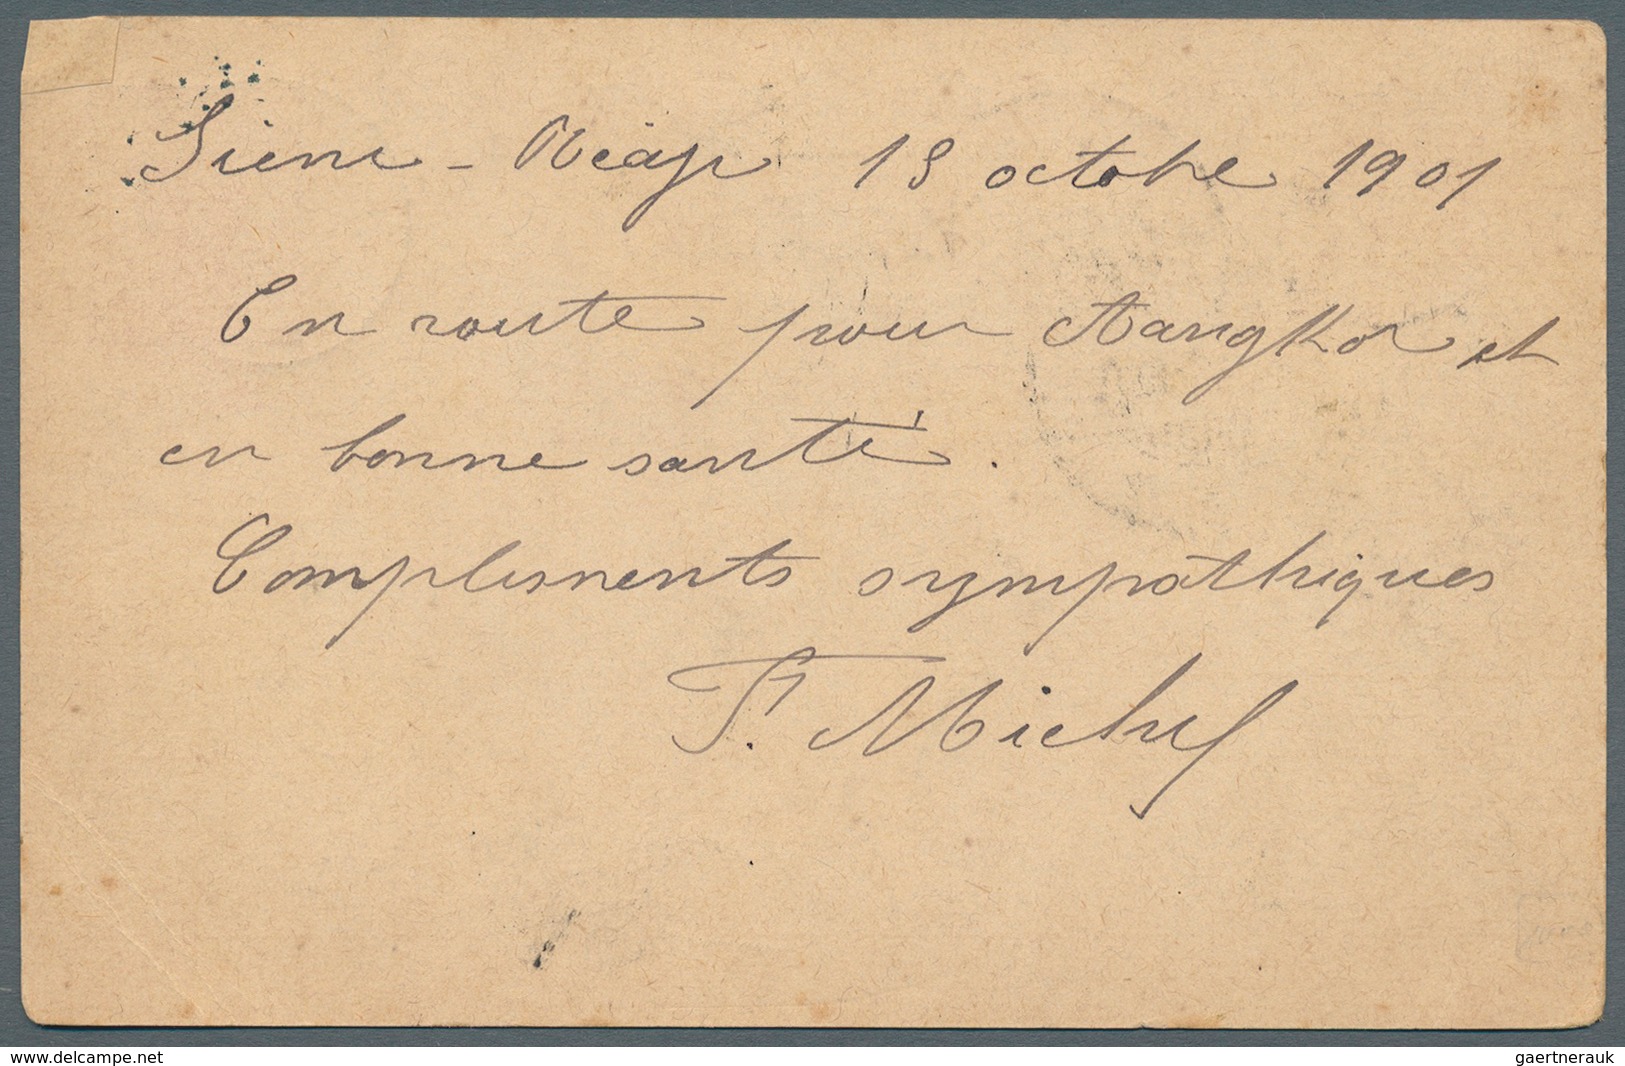 Siem-Réap 15 octobre 1901
En route pour Aangkor et
en bonne santé.
Compliments sympathiques
F. Michel
www.delcampe.net
gaertnerauk